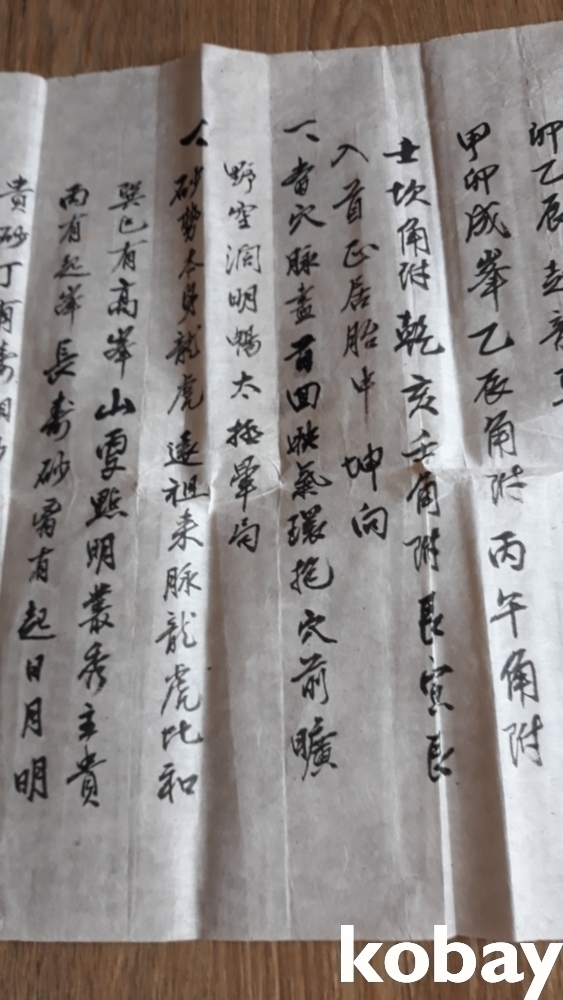 卯乙辰
甲卯成峯乙辰角附丙午角附
坎角附乾亥壬角附艮寅艮
入首正居胎中坤向
一、看穴脉盡首回峽氣環抱穴前曠
野空洞明暢太極暈局
一、砂勢本身龍虎遠祖来脉龍虎比和
巽巳有高峯山雯點明叢秀主貴
丙有起峯長壽砂 有起日月明
貴砂丁有壽
kobay